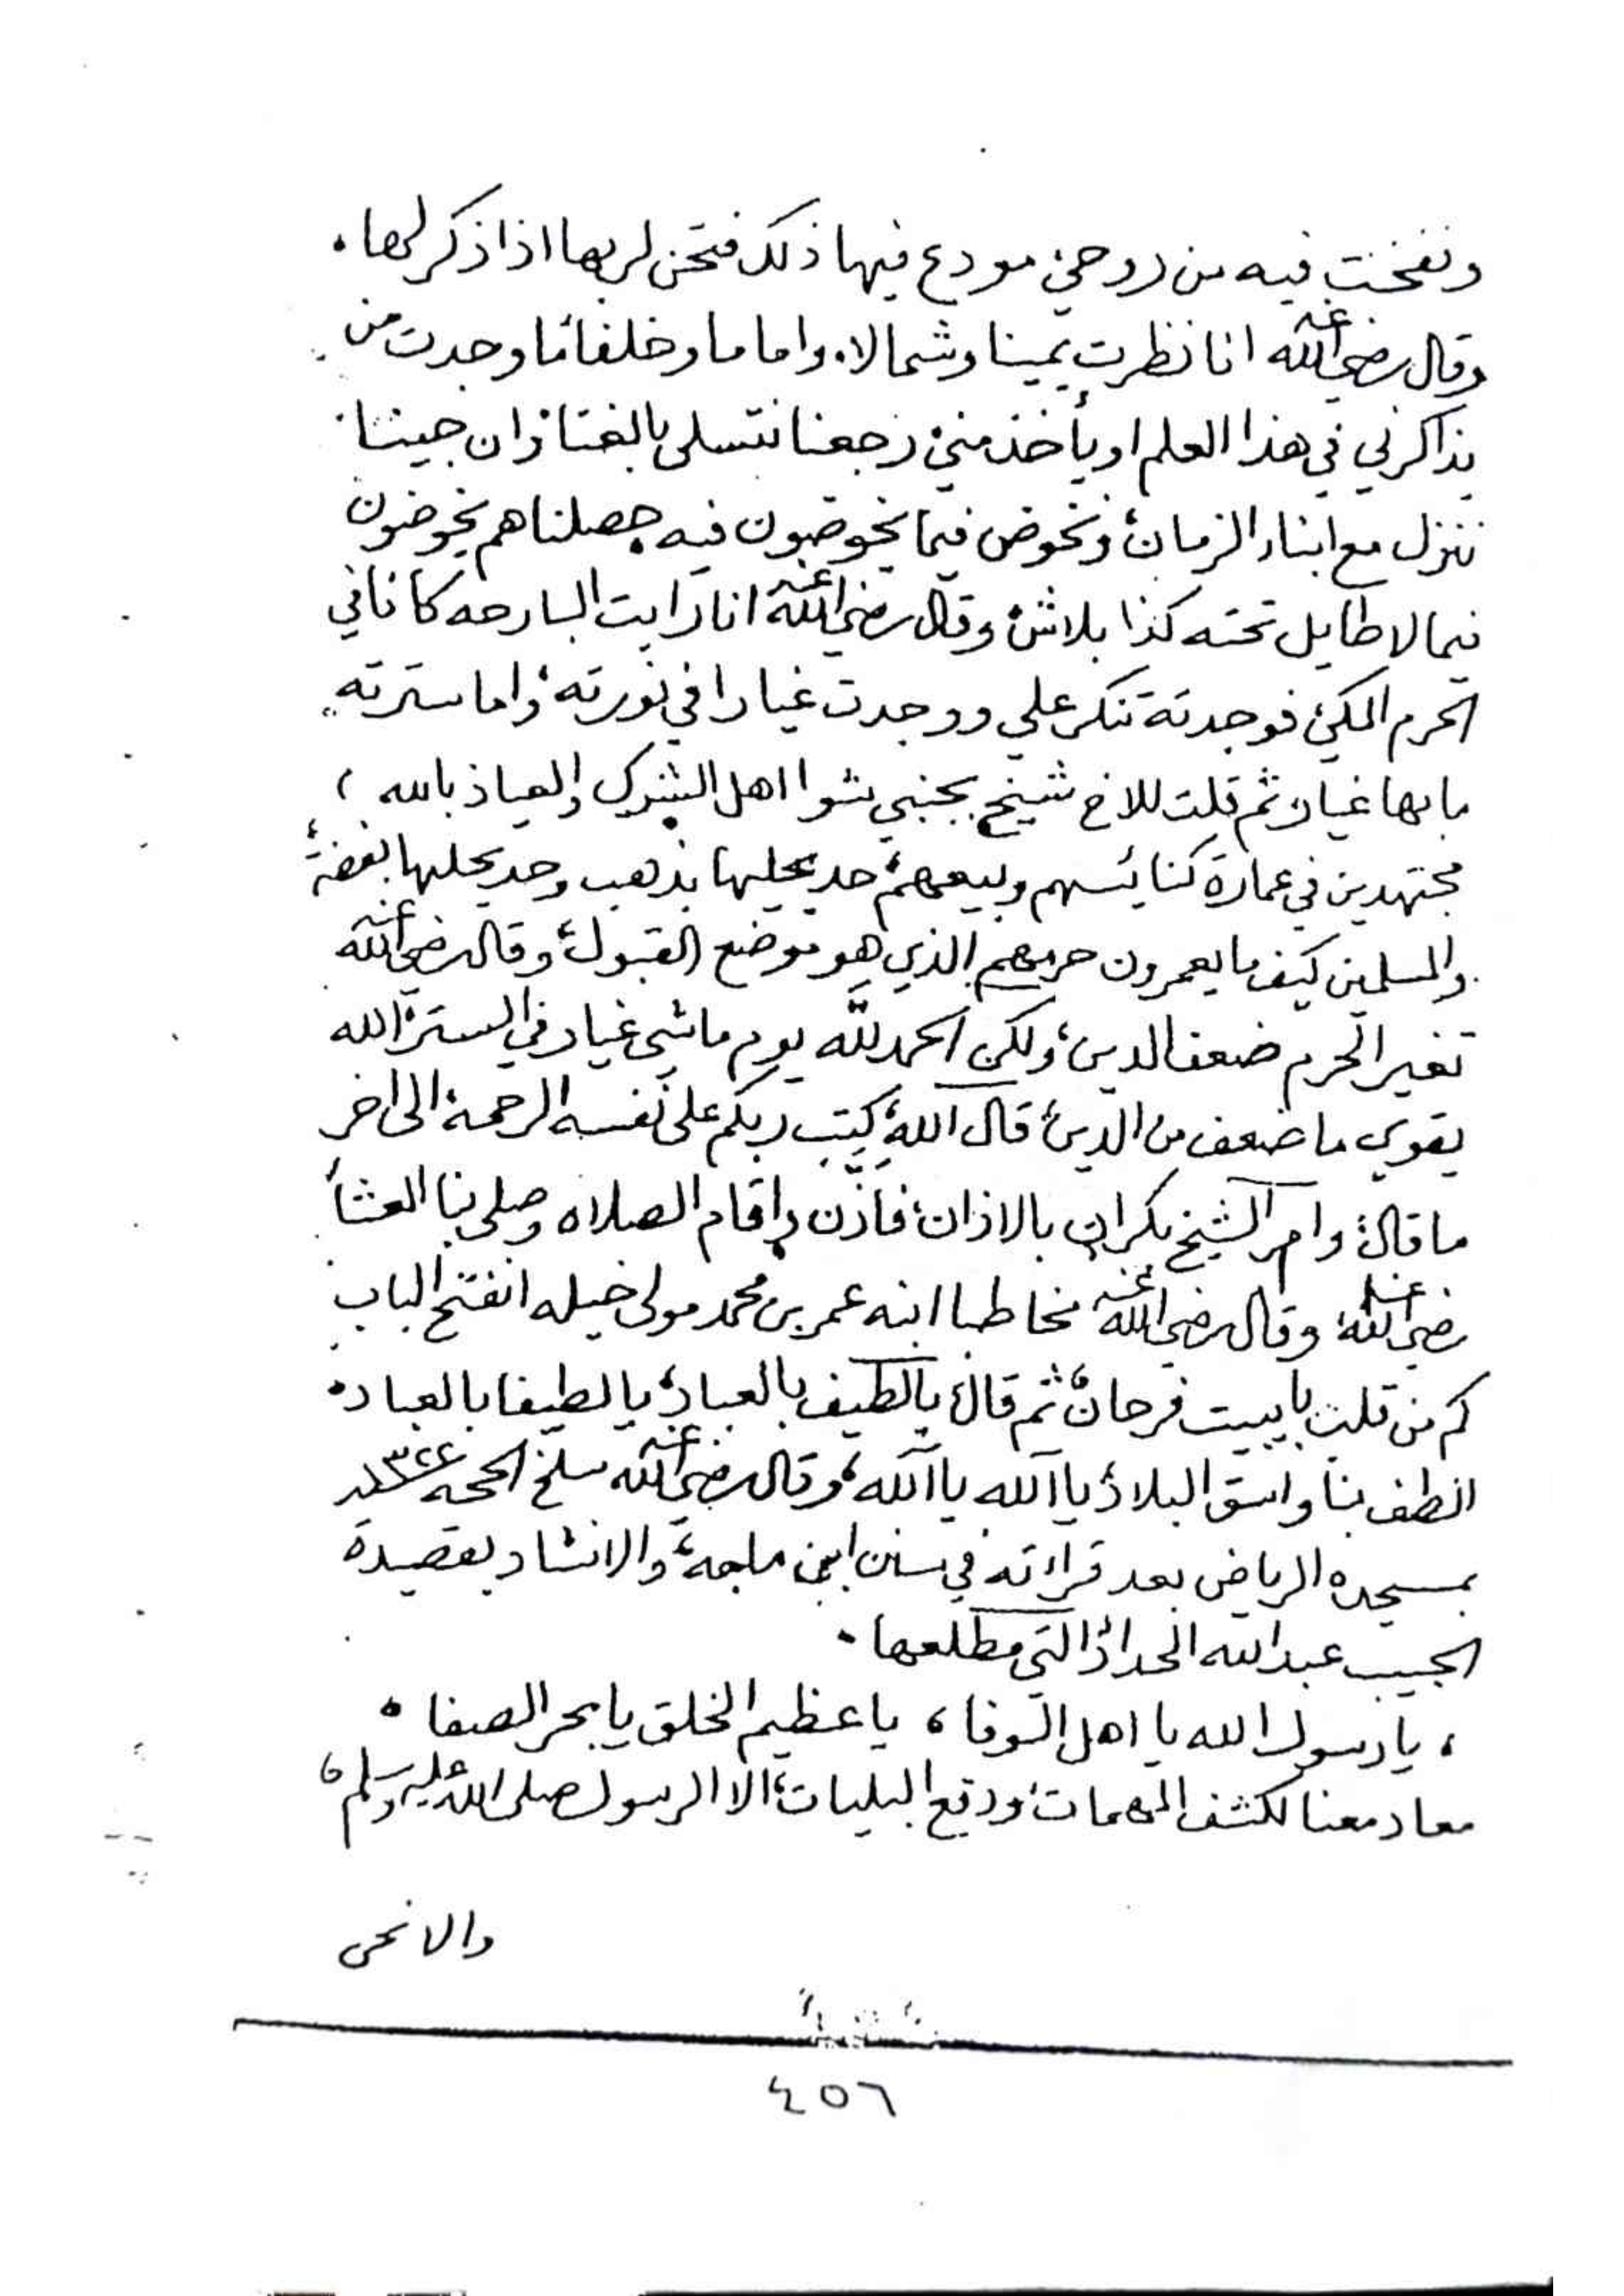 ونفخت فيه من روحي، مودع فيها ذلك فتحن لربها اذا ذكر لها.
وقال رضي الله عنه انا نظرت يمينا وشمالا، واماما وخلفا، ما وجدت من
يذاكرني في هذا العلم او يأخذ مني، رجعنا نتسلى بالغنا، وان جينا
ننزل مع ابناء الزمان، ونخوض فيما يخوضون فيه حصلناهم يخوضون
فيما لا طايل تحته كذا بلاش، وقال رضي الله عنه انا رايت البارحه كاناني
الحرم المكي، فوجدته تنكر علي ووجدت غيارا في نورته، واما سترته
ما بها غيار، ثم قلت للاخ شيخ بجنبي شوا اهل الشرك والعياذ بالله،
مجتهدين في عمارة كنائسهم وبيعهم، حد يحليها بذهب وحد يحليها بفضة،
والمسلمين كيف ما يعمرون حرمهم الذي هو موضع القبول، وقال رضي الله عنه
تغير الحرم ضعف الدين، ولكن الحمد لله يوم ماشي غيار في الستره، الله
يقوي ما ضعف من الدين، قال الله، كتب ربكم على نفسه الرحمة، الى اخر
ما قال، وامر الشيخ بكران بالاذان، فأذن واقام الصلاه وصلى بنا العشاء
رضي الله عنه، وقال رضي الله عنه مخاطبا ابنه عمر بن محمد مولى خيله انفتح الباب
كم من قلت با يبيت فرحان، ثم قال، يا لطيف بالعباد، يا لطيفا بالعباد.
الطف بنا واسق البلاد، يا الله يا الله، وقال رضي الله عنه سلخ الحجه ١٣٢٤
بمسجده الرياض بعد قراءته في سنن ابن ماجه، والانشاد بقصيدة
الحبيب عبدالله الحداد، التي مطلعها.
، يا رسول الله يا اهل الوفا ، يا عظيم الخلق يا بحر الصفا .
معاد معنا لكشف المهمات، ودفع البليات، الا الرسول صلى الله عليه وسلم،
والا نحن
٤٥٦